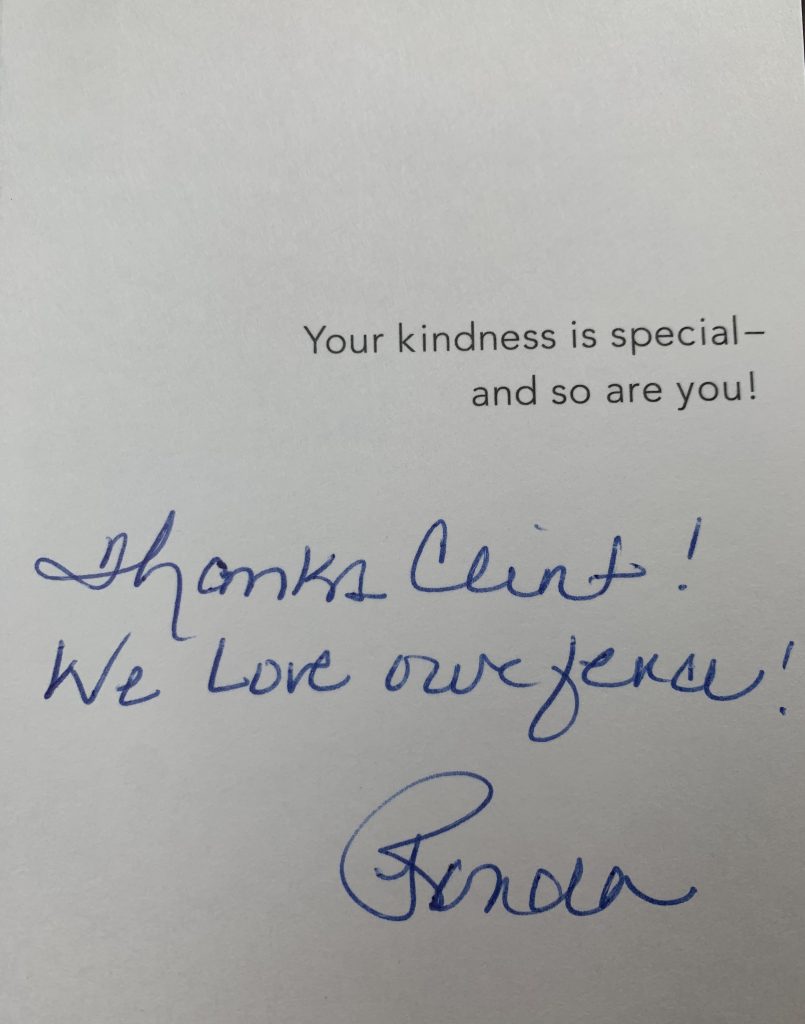 Your kindness is special–
and so are you!
Thanks Clint!
We Love our fence!
Ronda